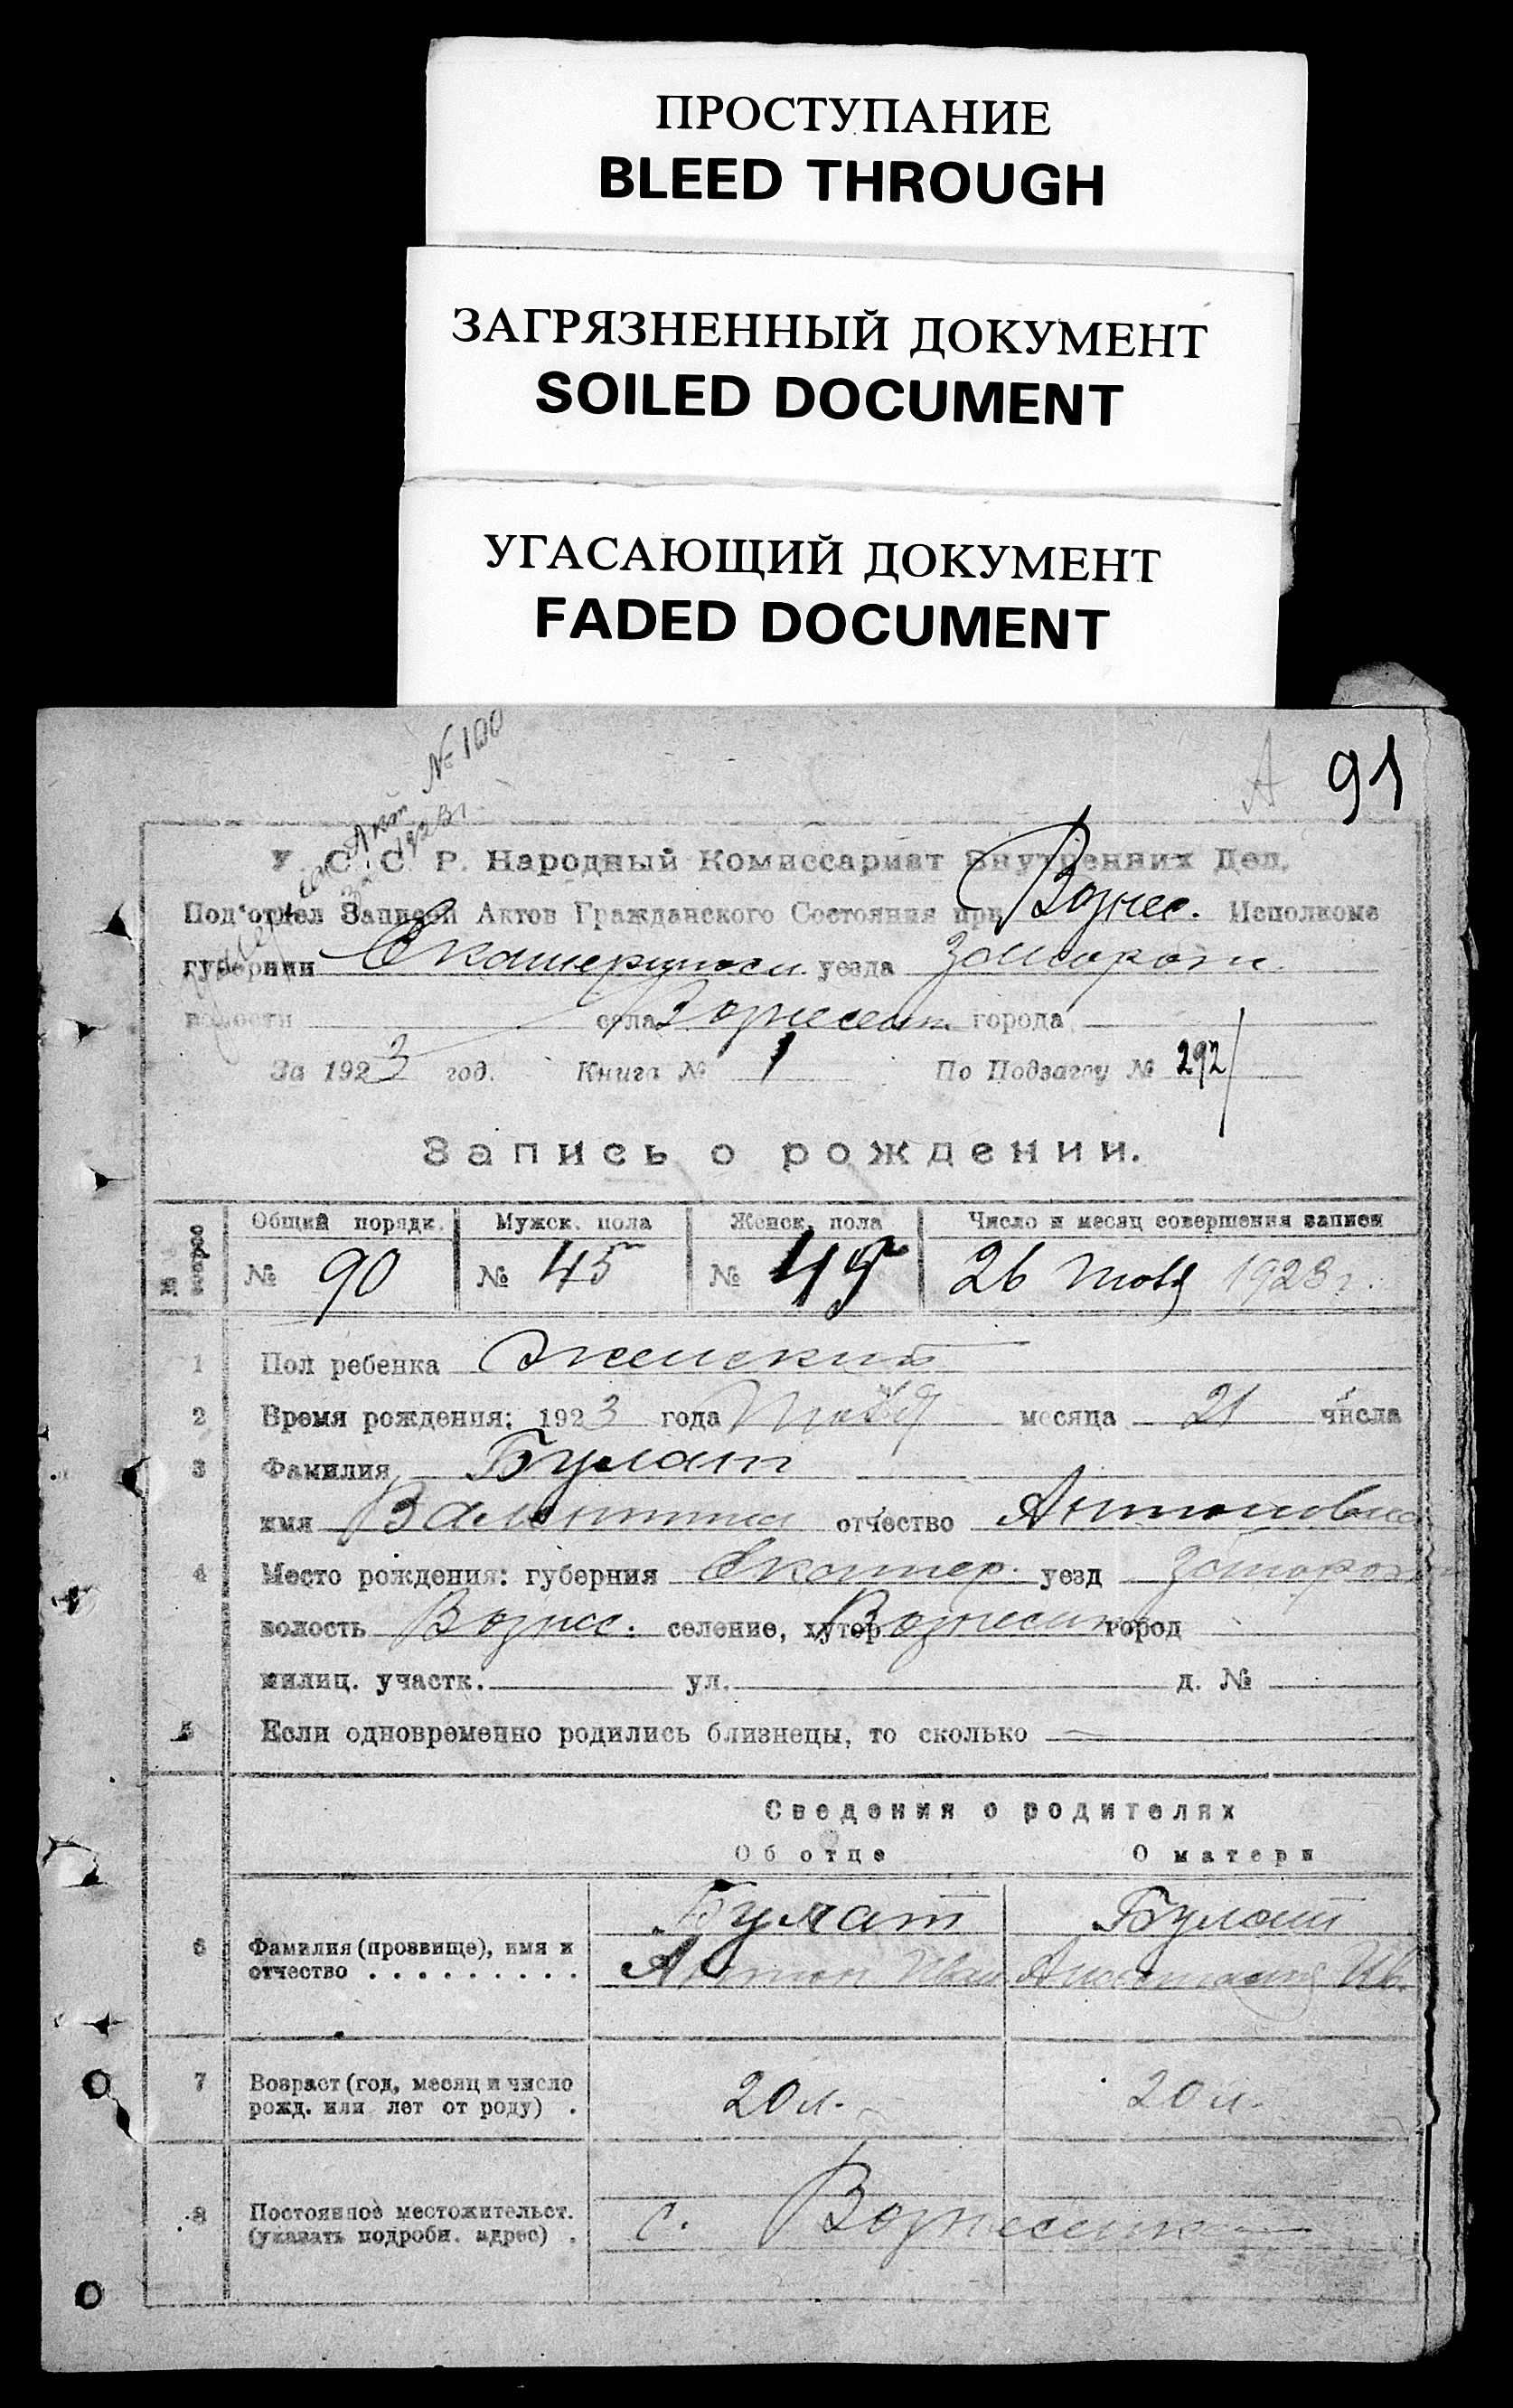 ПРОСТУПАНИЕ
BLEED THROUGH
ЗАГРЯЗНЕННЫЙ ДОКУМЕНТ
SOILED DOCUMENT
УГАСАЮЩИЙ ДОКУМЕНТ
FADED DOCUMENT
Акт № 100
1923 г.
А 91
У. С. С. Р. Народный Комиссариат Внутренних Дел.
Под'отдел Записей Актов Гражданского Состояния при Вознес. Исполкоме
губернии Екатериносл. уезда Запорож.
волости села Вознесен. города
За 1923 год. Книга № 1 По Подзагсу № 292
Запись о рождении.
Общий порядк. Мужск. пола Женск. пола Число и месяц совершения записи
№ 90 № 45 № 45 26 1923 г.
1 Пол ребенка Женский
2 Время рождения: 1923 года месяца 21 числа
3 Фамилия Булат
имя Валентина отчество Антоновна
4 Место рождения: губерния Екатер. уезд Запорож
волость Вознес. селение, хутор Вознесен город
милиц. участк. ул. д. №
5 Если одновременно родились близнецы, то сколько
Сведения о родителях
Об отце О матери
Булат Булат
6 Фамилия (прозвище), имя и отчество . . . . . . . . . Антон Иван Анастасия Ив.
7 Возраст (год, месяц и число рожд. или лет от роду) . 20 л. 20 л.
8 Постоянное местожительст. (указать подробн. адрес) . с. Вознесенк